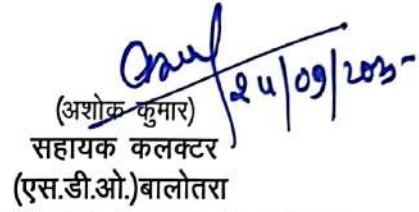 24/09/2025
(अशोक कुमार)
सहायक कलक्टर
(एस.डी.ओ.)बालोतरा